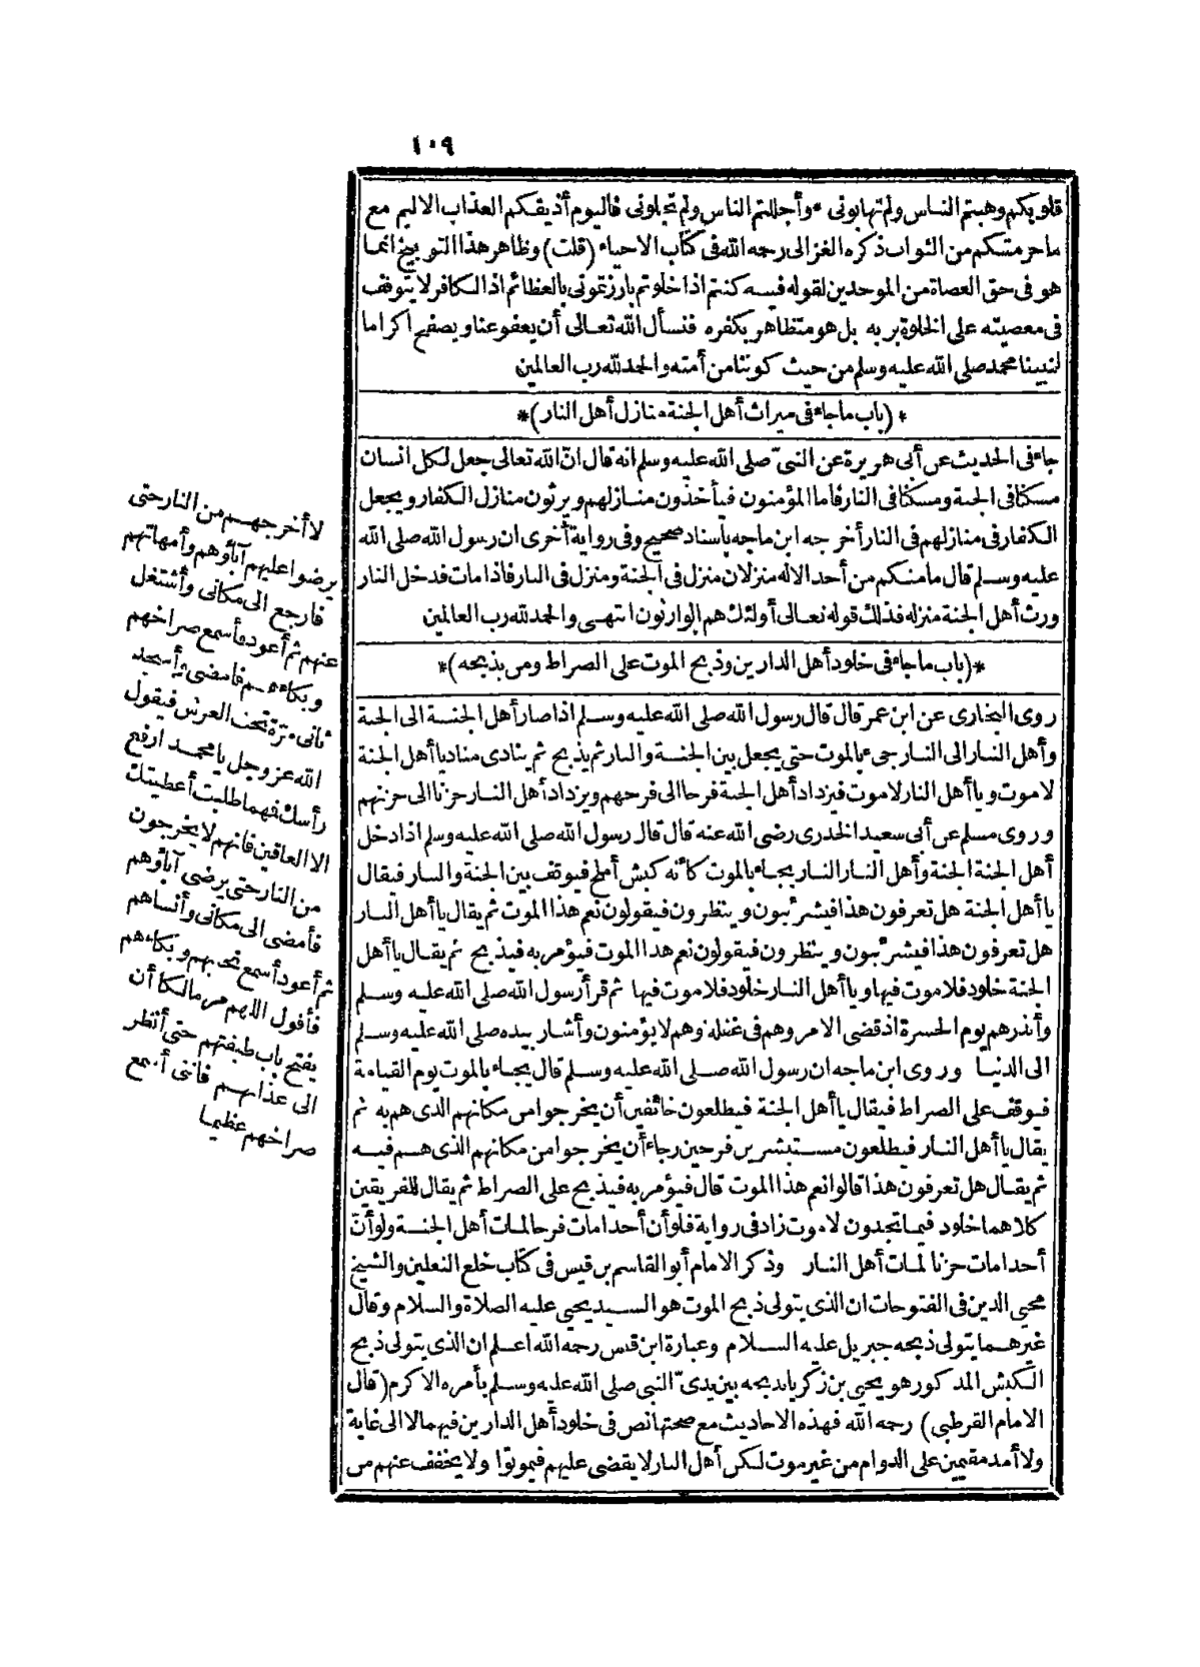 ١٠٩
قلوبكم وهبتم الناس ولم تهابونى * وأجللتم الناس ولم تجلونى فاليوم أذيقكم العذاب الاليم مع
ماحرمتكم من الثواب ذكره الغزالى رحمه الله فى كتاب الاحياء (قلت) وظاهر هذا التوبيخ انما
هو فى حق العصاة من الموحدين لقوله فيه كنتم اذا خلوتم بارزتمونى بالعظائم اذ الكافر لا يتوقف
فى معصيته على الخلوة بربه بل هو متظاهر بكفره فنسأل الله تعالى أن يعفو عنا ويصفح اكراما
لنبينا محمد صلى الله عليه وسلم من حيث كوننا من أمته والحمد لله رب العالمين
* (باب ماجاء فى ميراث أهل الجنة منازل أهل النار) *
جاء فى الحديث عن أبى هريرة عن النبىّ صلى الله عليه وسلم انه قال انّ الله تعالى جعل لكل انسان
مسكنا فى الجنة ومسكنا فى النار فاما المؤمنون فيأخذون منازلهم ويرثون منازل الكفار ويجعل
الكفار فى منازلهم فى النار أخرجه ابن ماجه بأسناد صحيح وفى رواية أخرى ان رسول الله صلى الله
عليه وسلم قال مامنكم من أحد الا له منزلان منزل فى الجنة ومنزل فى النار فاذا مات فدخل النار
ورث أهل الجنة منزله فذلك قوله تعالى أولئك هم الوارثون انتهى والحمد لله رب العالمين
* (باب ماجاء فى خلود أهل الدارين وذبح الموت على الصراط ومن يذبحه) *
روى البخارى عن ابن عمر قال قال رسول الله صلى الله عليه وسلم اذا صار أهل الجنة الى الجنة
وأهل النار الى النار جىء بالموت حتى يجعل بين الجنة والنار ثم يذبح ثم ينادى مناد يا أهل الجنة
لاموت ويا أهل النار لاموت فيزداد أهل الجنة فرحا الى فرحهم ويزداد أهل النار حزنا الى حزنهم
وروى مسلم عن أبى سعيد الخدرى رضى الله عنه قال قال رسول الله صلى الله عليه وسلم اذا دخل
أهل الجنة الجنة وأهل النار النار يجاء بالموت كأنه كبش أملح فيوقف بين الجنة والنار فيقال
يا أهل الجنة هل تعرفون هذا فيشرئبون وينظرون فيقولون نعم هذا الموت ثم يقال يا أهل النار
هل تعرفون هذا فيشرئبون وينظرون فيقولون نعم هذا الموت فيؤمر به فيذبح ثم يقال يا أهل
الجنة خلود فلاموت فيها ويا أهل النار خلود فلاموت فيها ثم قرأ رسول الله صلى الله عليه وسلم
وأنذرهم يوم الحسرة اذ قضى الامر وهم فى غفلة وهم لا يؤمنون وأشار بيده صلى الله عليه وسلم
الى الدنيا وروى ابن ماجه ان رسول الله صلى الله عليه وسلم قال يجاء بالموت يوم القيامة
فيوقف على الصراط فيقال يا أهل الجنة فيطلعون خائفين أن يخرجوا من مكانهم الذى هم به ثم
يقال يا أهل النار فيطلعون مستبشرين فرحين رجاء أن يخرجوا من مكانهم الذى هم فيه
ثم يقال هل تعرفون هذا قالوا نعم هذا الموت قال فيؤمر به فيذبح على الصراط ثم يقال للفريقين
كلاهما خلود فيما تجدون لاموت زاد فى رواية فلو أن أحدا مات فرحا لمات أهل الجنة ولو أنّ
أحدا مات حزنا لمات أهل النار وذكر الامام أبو القاسم بن قيس فى كتاب خلع النعلين والشيخ
محيى الدين فى الفتوحات ان الذى يتولى ذبح الموت هو السيد يحيى عليه الصلاة والسلام وقال
غيرهما يتولى ذبحه جبريل عليه السلام وعبارة ابن قس رحمه الله اعلم ان الذى يتولى ذبح
الكبش المذكور هو يحيى بن زكريا يذبحه بين يدىّ النبى صلى الله عليه وسلم بأمره الاكرم (قال
الامام القرطبى) رحمه الله فهذه الاحاديث مع صحتها نص فى خلود أهل الدارين فيهما لا الى غاية
ولا أمد مقيمين على الدوام من غير موت لكن أهل النار لا يقضى عليهم فيموتوا ولا يخفف عنهم من
لا أخرجهم من النار حتى
يرضوا عليهم آباؤهم وأمهاتهم
فارجع الى مكانى وأشتغل
عنهم ثم أعود فأسمع صراخهم
وبكاءهم فامضى وأسجد
ثانى مرّة تحت العرش فيقول
الله عز وجل يا محمد ارفع
رأسك فهما طلبت أعطيتك
الا العاقين فانهم لا يخرجون
من النار حتى يرضى آباؤهم
فأمضى الى مكانى وأنساهم
ثم أعود أسمع نحيبهم وبكاءهم
فأقول اللهم مر مالكا أن
يفتح باب طبقتهم حتى أنظر
الى عذابهم فاننى أسمع
صراخهم عظيما